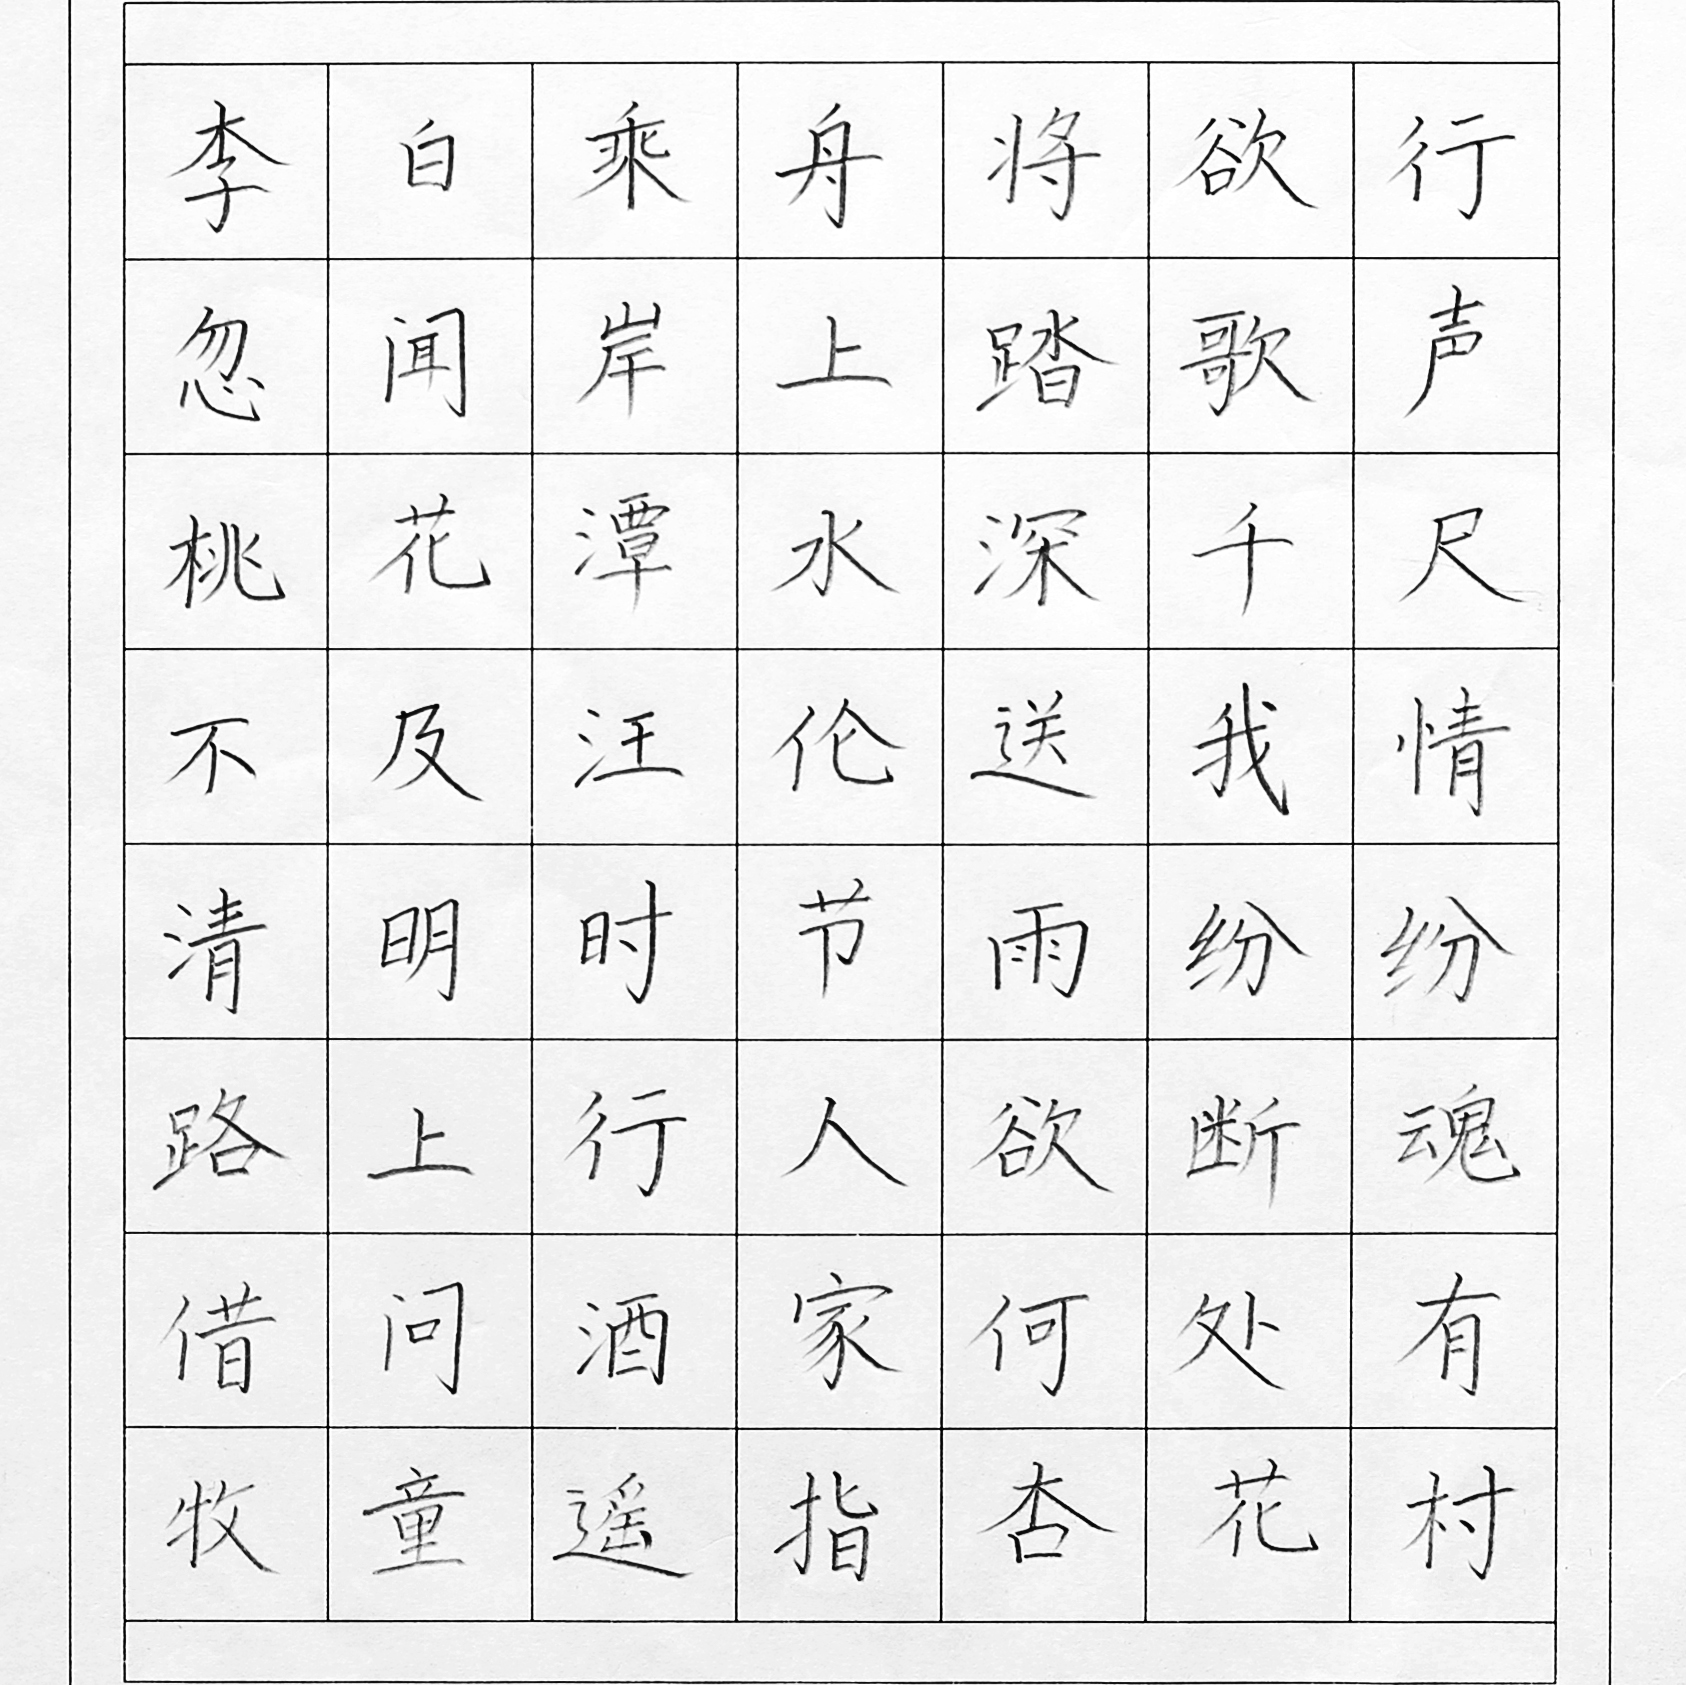 李白乘舟将欲行
忽闻岸上踏歌声
桃花潭水深千尺
不及汪伦送我情
清明时节雨纷纷
路上行人欲断魂
借问酒家何处有
牧童遥指杏花村